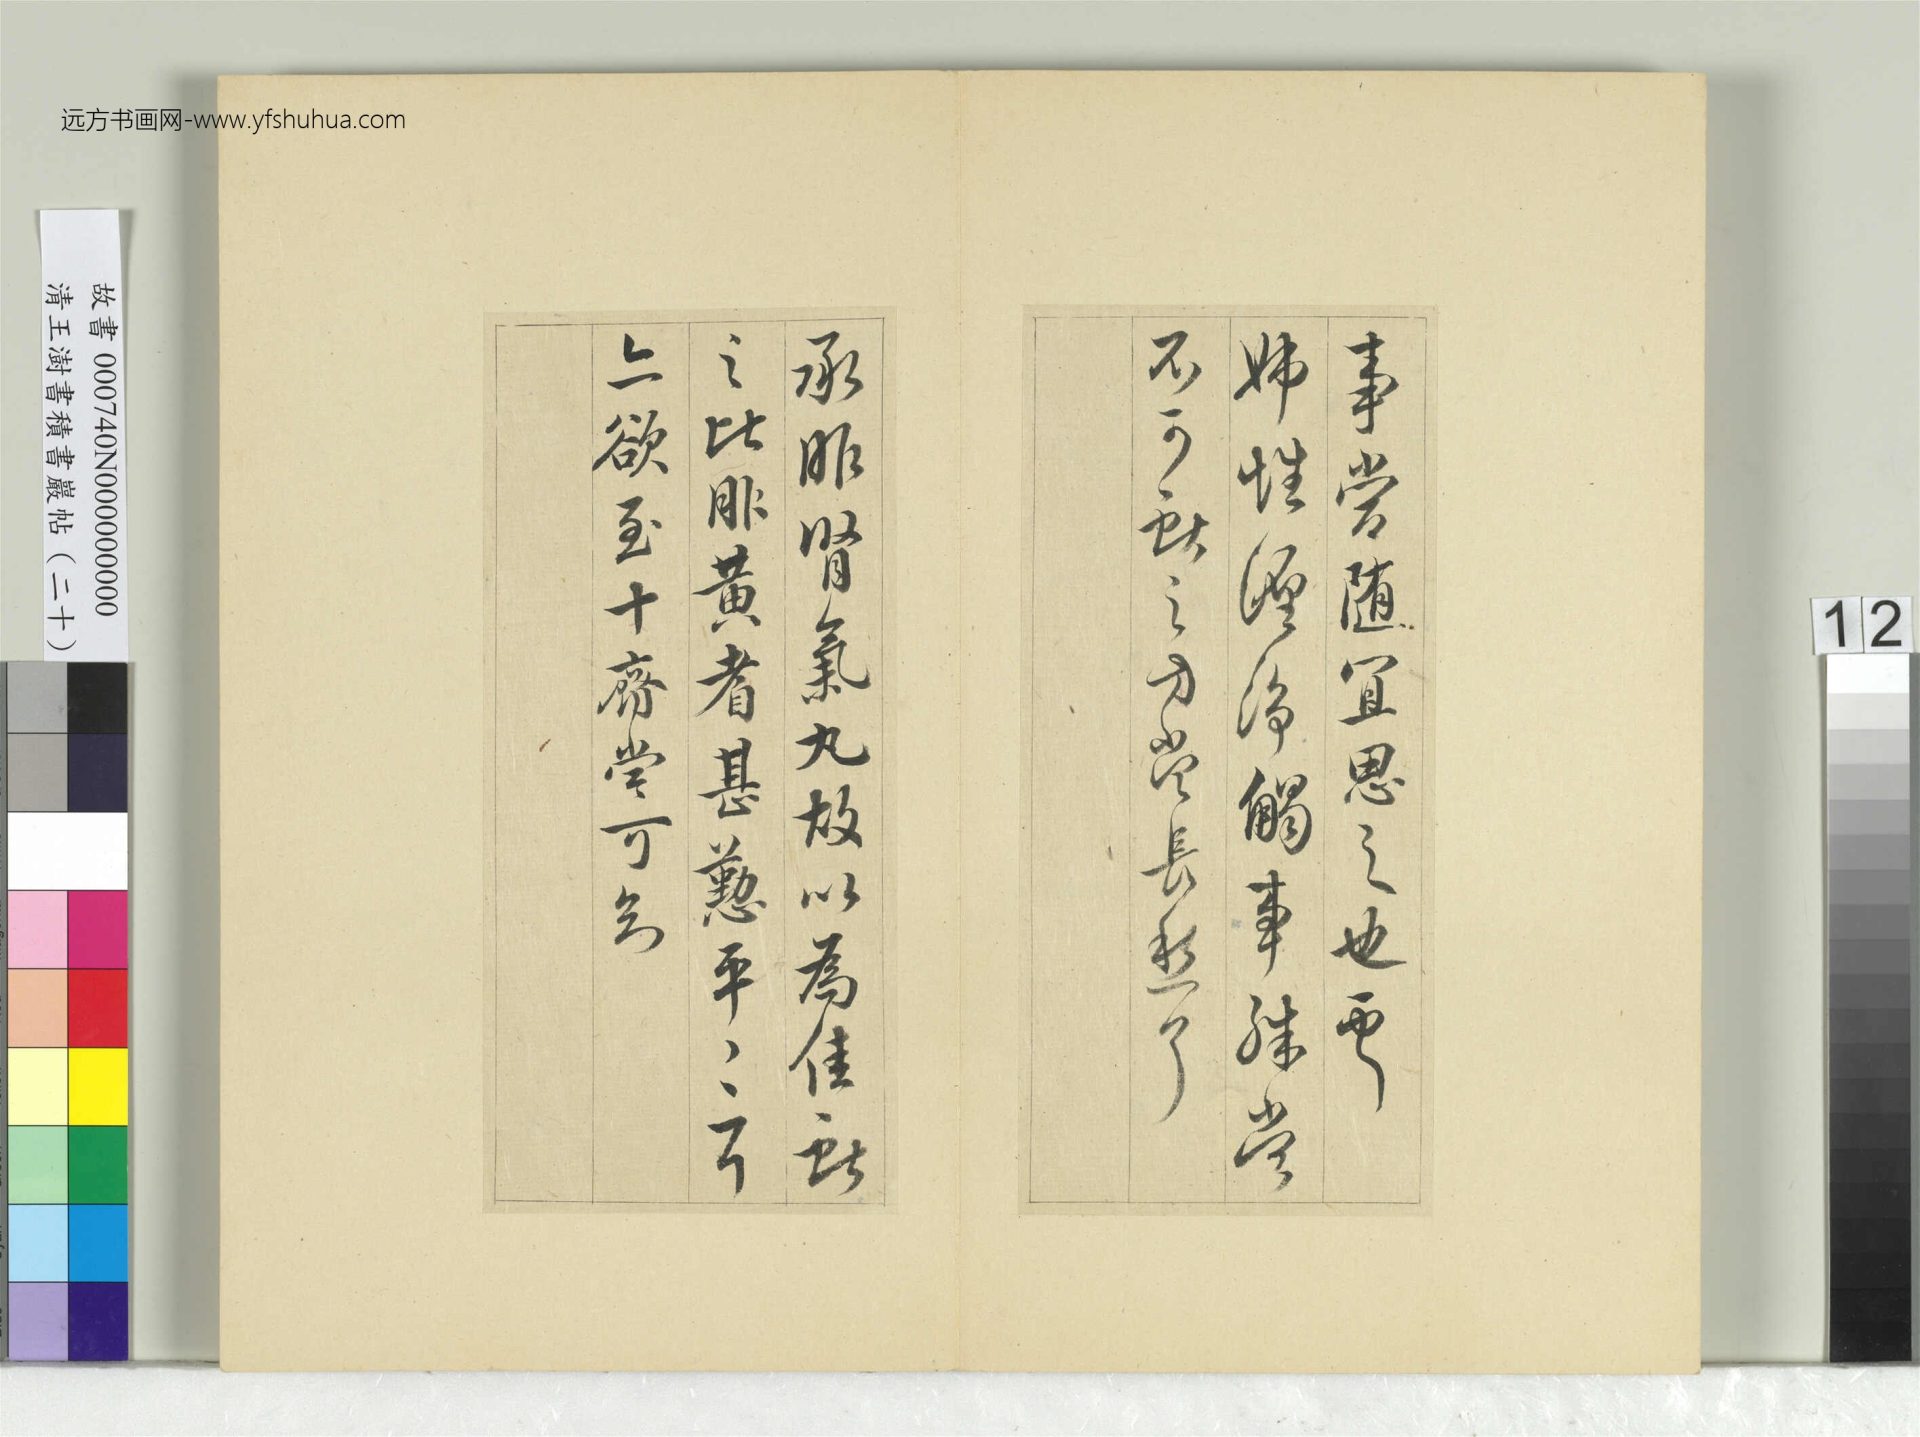 远方书画网-www.yfshuhua.com
故書 000740N000000000
清王澍書積書巖帖（二十）
12
事當隨宜思之也
姊性纏綿觸事殊當
不可獻之方當長愁耳
承服腎氣丸故以為佳獻
之比服黃耆甚懃平平耳
亦欲至十齊當可知